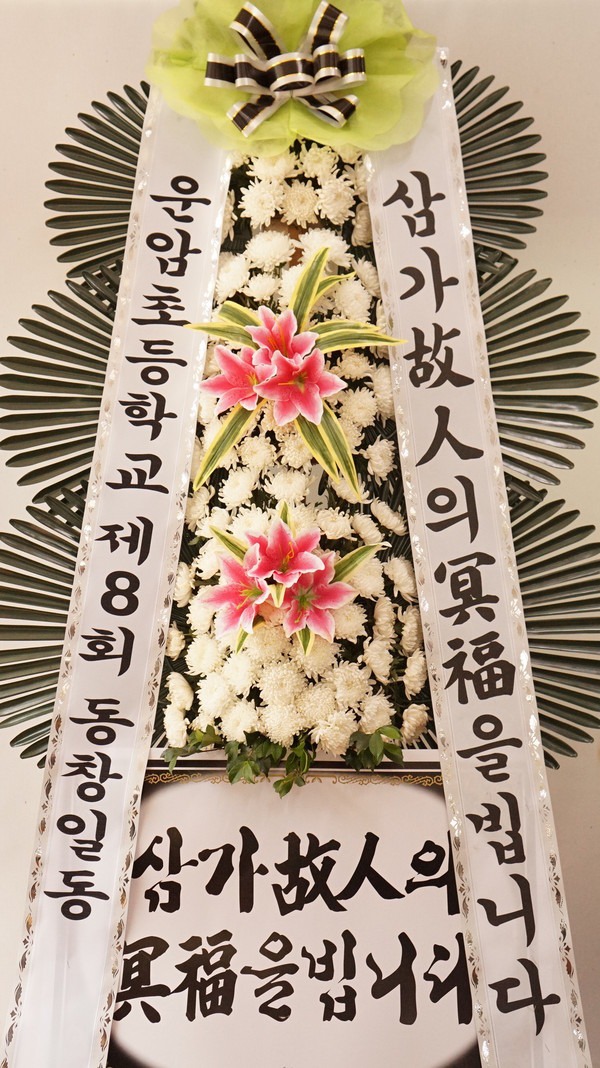 운암초등학교 제8회 동창일동
삼가故人의冥福을빕니다
삼가故人의
冥福을빕니다